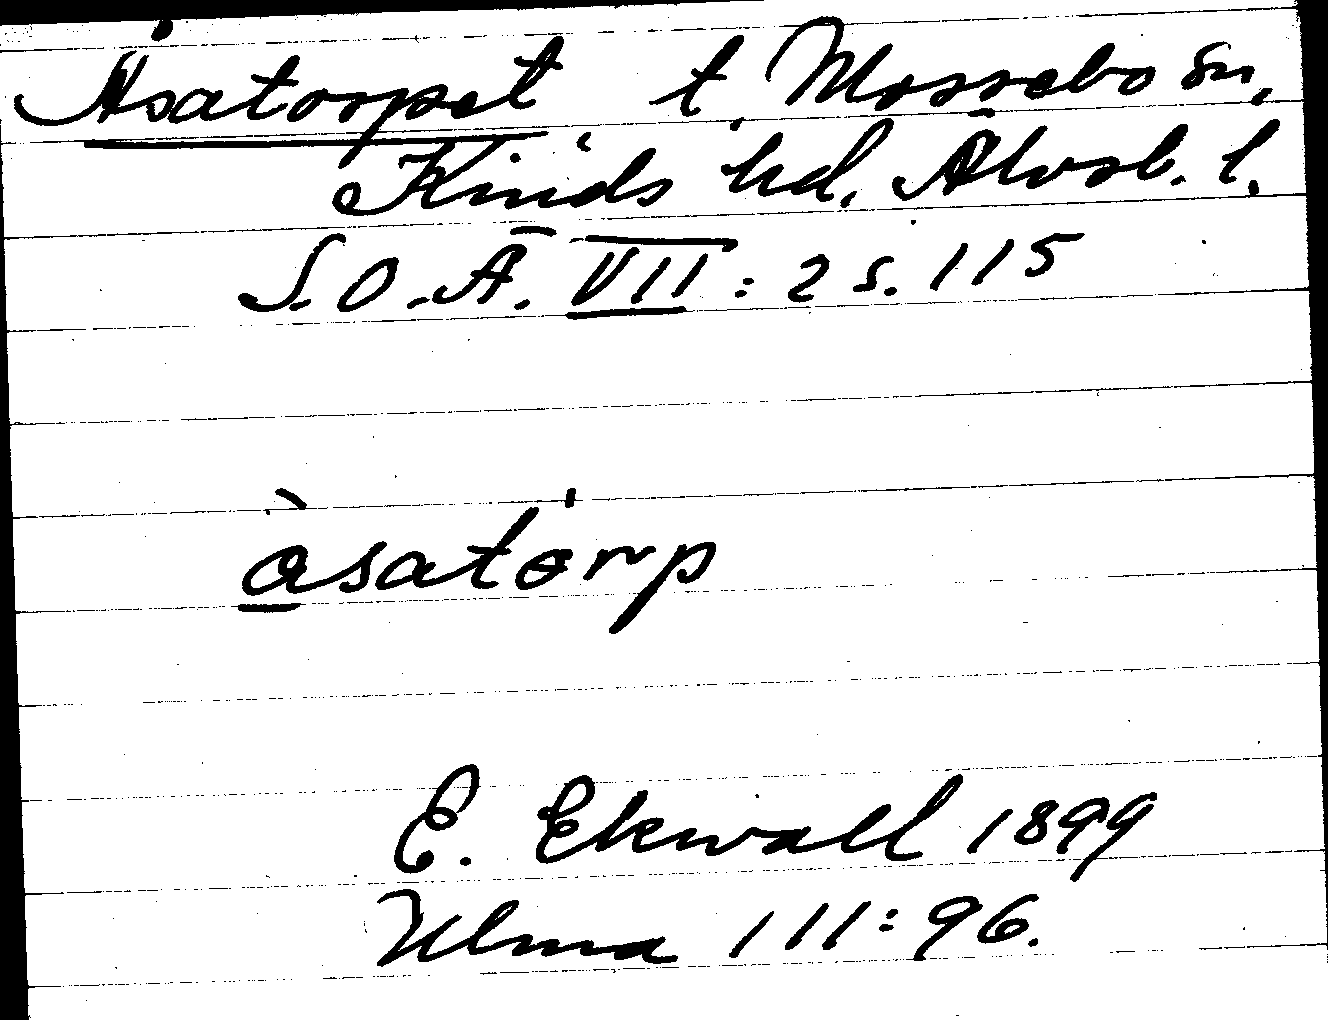 Åsatorpet t. Mossebo sn,
Kinds hd. Älvsb. l.
S.O.Ä. VII : 2 s. 115
àsatɵrp
E. Ekwall 1899
Ulma 111:96.